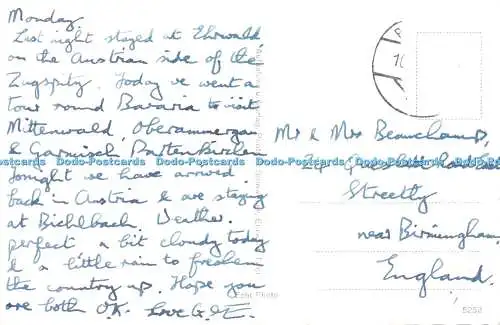 Monday.
Last night stayed at Ehrwald
on the Austrian side of the
Zugspitz. Today we went a
tour round Bavaria to visit
Mittenwald, Oberammergan
& Garmisch Partenkirchen
Tonight we have arrived
back in Austria & are staying
at Bichlbach. Weather
perfect a bit cloudy today
& a little rain to freshen
the country up. Hope you
are both O.K. Love G. & E.
Mr & Mrs Beauchamp,
24
Streetly
near Birmingham
England.
Dodo-Postcards Dodo-Postcards Dodo-Postcards Dodo-Postcards Dodo-Postcards Dodo-Postcards
Echt Photo
5252